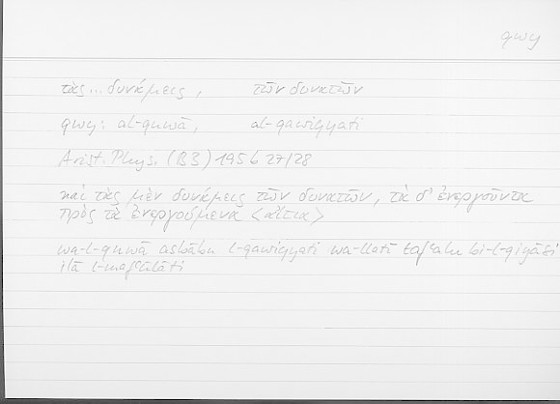 qwy
τὰς... δυνάμεις, τῶν δυνατῶν
qwy: al-quwā, al-qawiyyati
Arist. Phys. (B3) 195b 27/28
καὶ τὰς μὲν δυνάμεις τῶν δυνατῶν, τὰ δ' ἐνεργοῦντα
πρὸς τὰ ἐνεργούμενα <αἴτια>
wa-l-quwā asbābu l-qawiyyati wa-llatī tafʿalu bi-l-qiyāsi
ilā l-mafʿūlāti